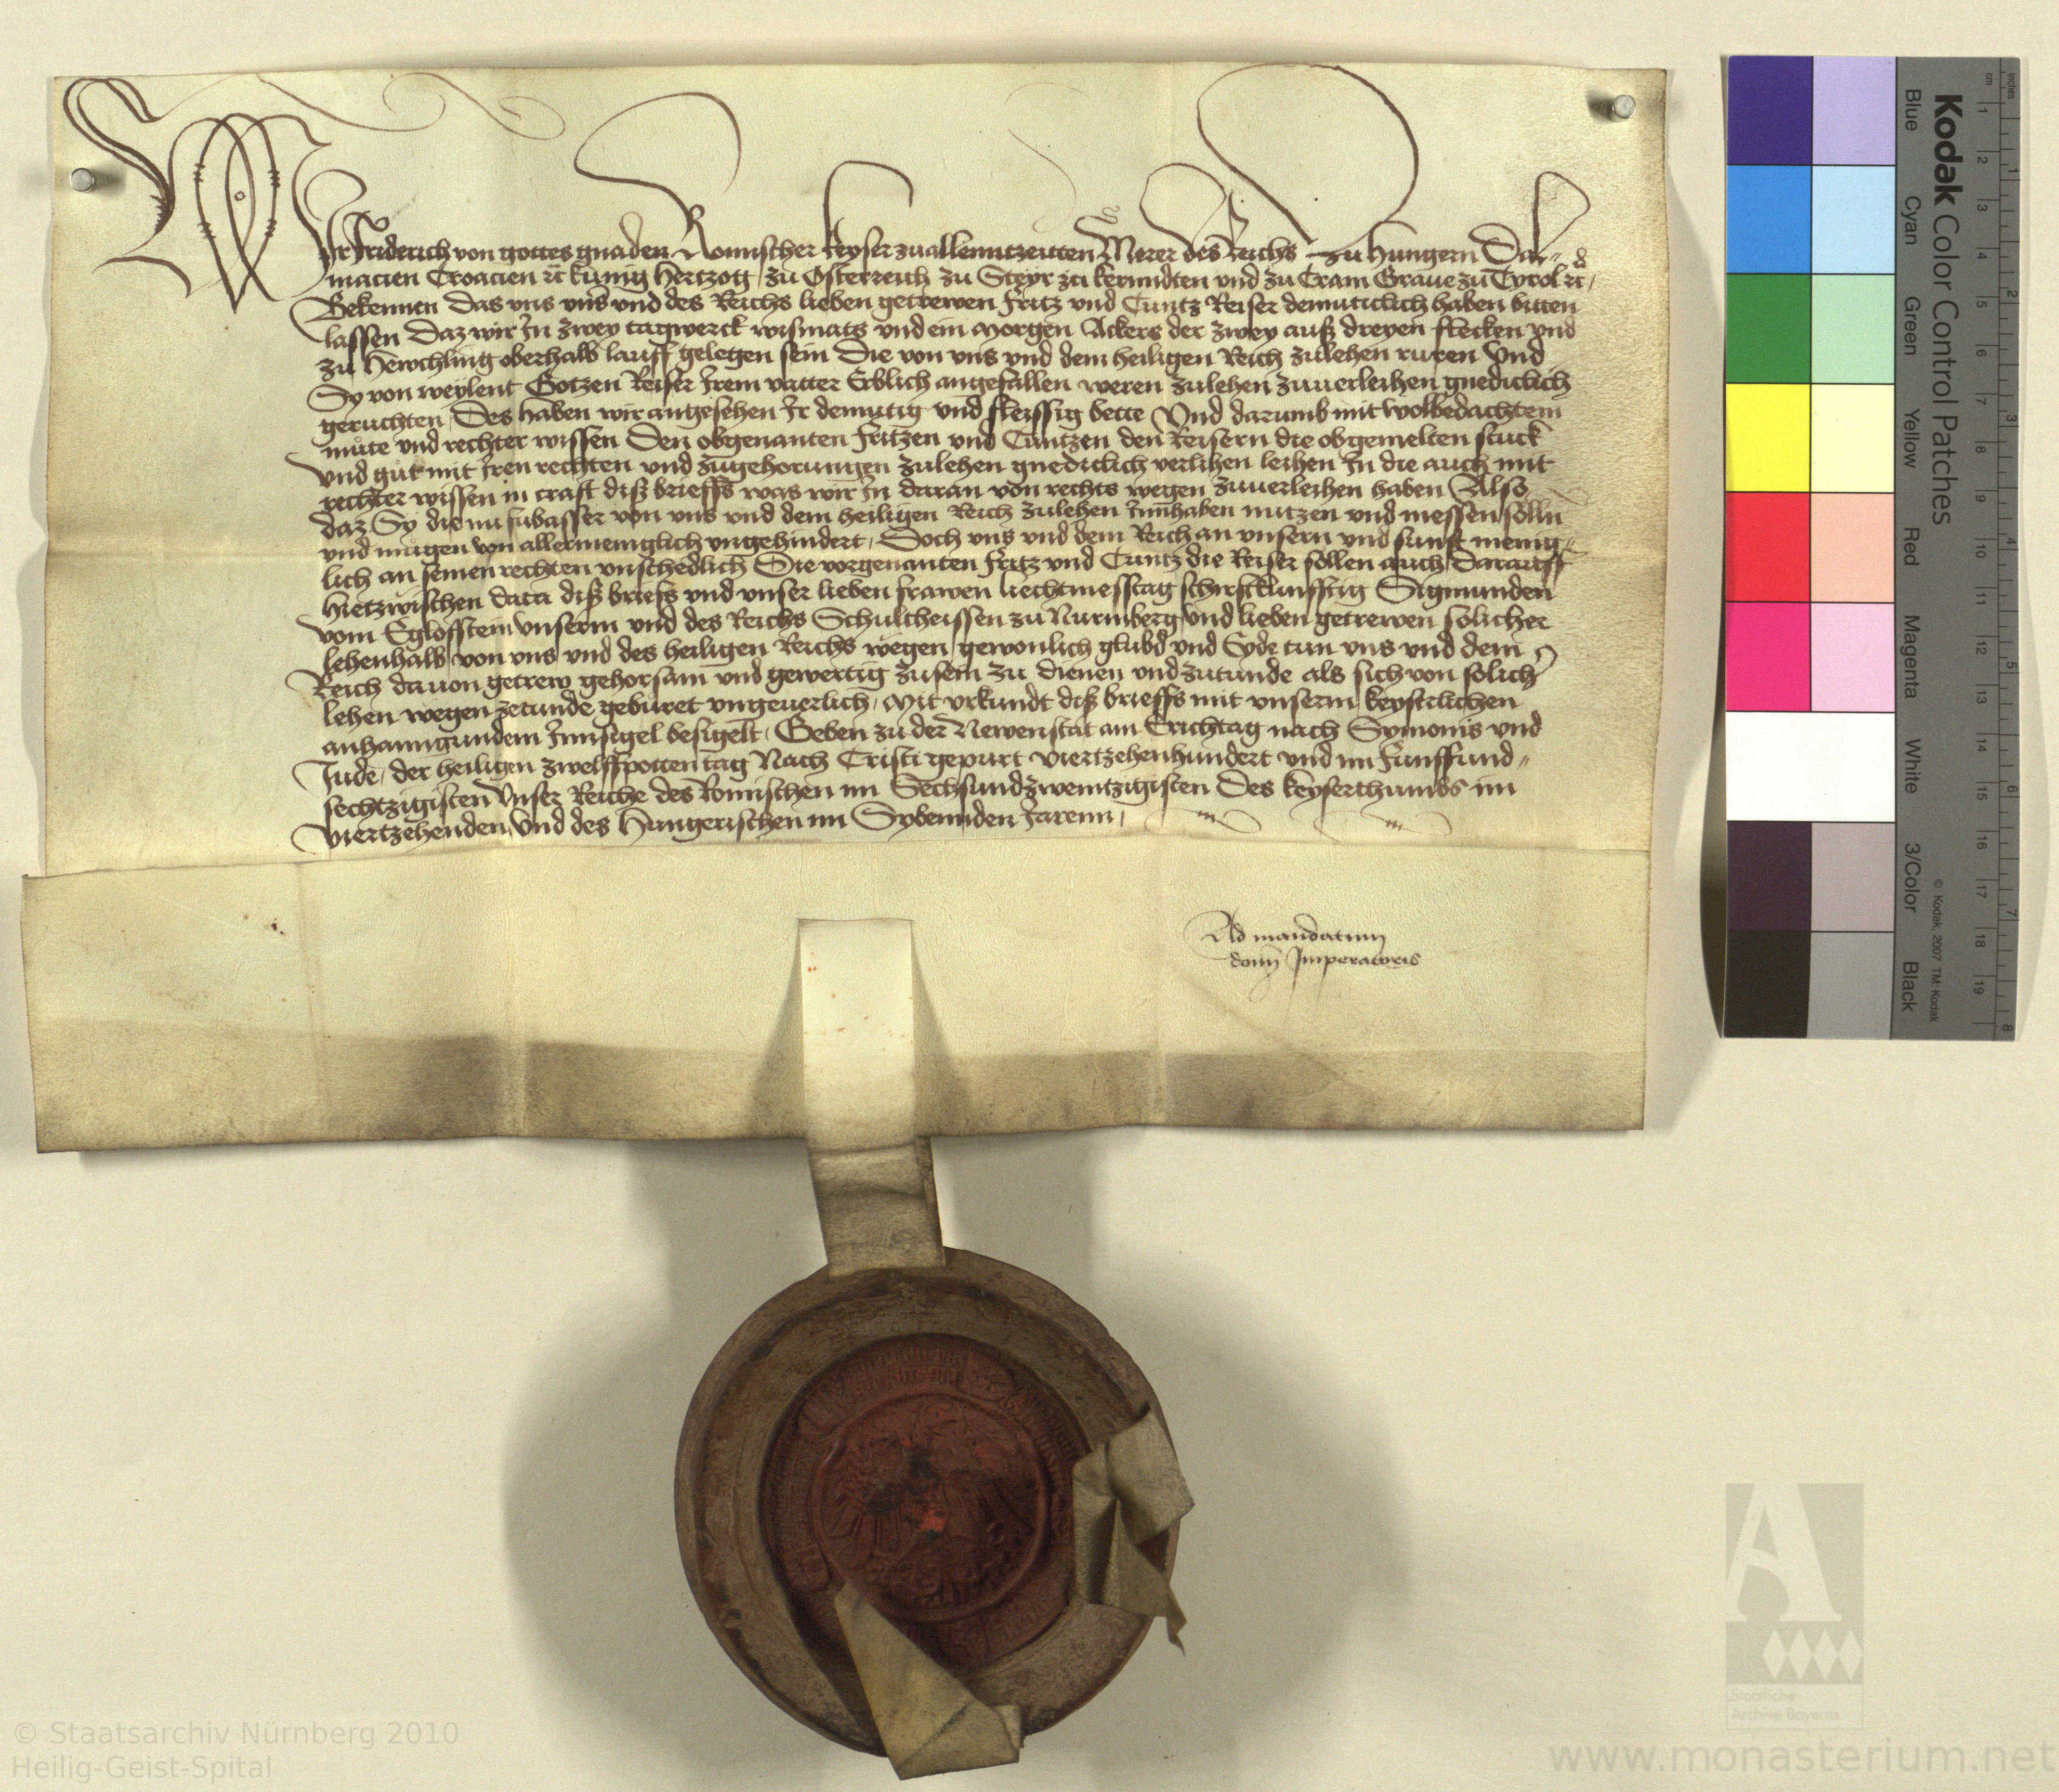 Wir Friderich von gottes gnaden Romischer keyser zuallenntzeitten Merer des Reichs zu Hungern Dal-
macien Croacien rc kunig Hertzog zu Osterreich zu Steyr zu kernndten und zu Crain Graue zu Tyrol rc
Bekennen das uns unns und des Reichs lieben getrewen Fritz und Cuntz Reiser demuticlich haben bitten
lassen Daz wir In zwey tagwerck wismats und ein morgen Ackers der zwey auß dreyen flecken und
zu Hewchling oberhalb lauff gelegen sein Die von uns und dem heiligen Reich zulehen ruren Und
Sy von weylent Gotzen Reiser Irem vatter Erblich angefallen weren zulehen zuuerleihen gnediclich
geruchten Des haben wir angesehen Ir demutig und fleissig bette Und darumb mit wolbedachtem
mute und rechter wissen Den obgenanten Fritzen und Cuntzen den Reisern die obgemelten stuck
und gut mit Iren rechten und zugehorungen zulehen gnediclich verlihen leihen In die auch mit
rechter wissen in craft diß brieffs was wir In daran von rechts wegen zuuerleihen haben Also
daz Sy die nu fubasser von uns und dem heiligen Reich zulehen Innhaben nutzen und niessen solln
und mugen von allermeniglich ungehindert Doch uns und dem Reich an unsern und sunst menig-
lich an seinen rechten unschedlich Die vorgenanten Fritz und Cuntz die Reiser sollen auch darauff
hietzwischen data diß briefs und unser lieben frawen liechtmesstag schirstkunfftig Sigmunden
vom Egloffstein unserm und des Reichs Schultheissen zu Nurmberg und lieben getrewen solicher
lehenhalb von uns und des heiligen Reichs wegen gewonlich glubd und Eyde tun uns und dem
Reich dauon getrew gehorsam und gewertig zusein zu dienen und zutunde als sich von solich
lehen wegen zetunde geburet ungeuerlich Mit urkundt diß brieffs mit unserm keyserlichen
anhanngundem Innsigel besigelt Geben zu der Newenstat am Erichtag nach Symonis und
Jude der heiligen zwelffpotten tag Nach Cristi gepurt viertzehenhundert und im Funffund-
sechtzigisten Unser Reiche des Romischen im Sechsundzweintzigisten Des keyserthumbs im
viertzehenden Und des Hungerischen im Sybennden Jarenn
Ad mandatum
domini Imperatoris
Kodak Color Control Patches
Blue Cyan Green Yellow Red Magenta White 3/Color Black
© Kodak, 2007 TM: Kodak
cm 1 2 3 4 5 6 7 8 9 10 11 12 13 14 15 16 17 18 19
inches 1 2 3 4 5 6 7 8
© Staatsarchiv Nürnberg 2010
Heilig-Geist-Spital
Staatliche
Archive Bayerns
www.monasterium.net